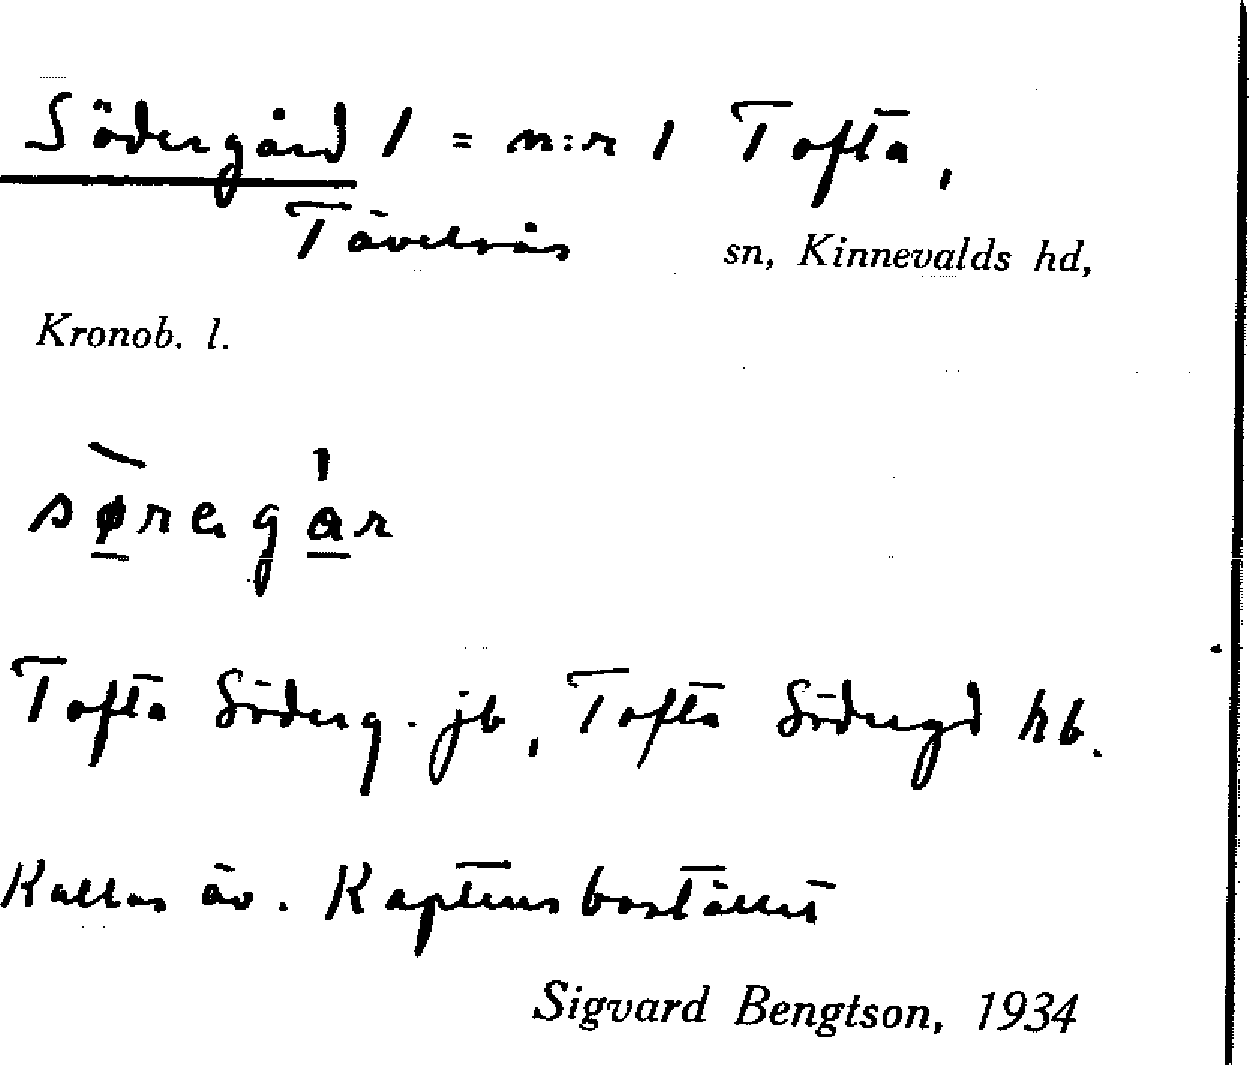 Södergård 1 = n:r 1 Tofta,
Tävelsås sn, Kinnevalds hd,
Kronob. l.
sø̱̀regá̱r
Tofta Söderg. jb, Tofta Södergd hb.
Kallas äv. Kaptensbostället
Sigvard Bengtson, 1934